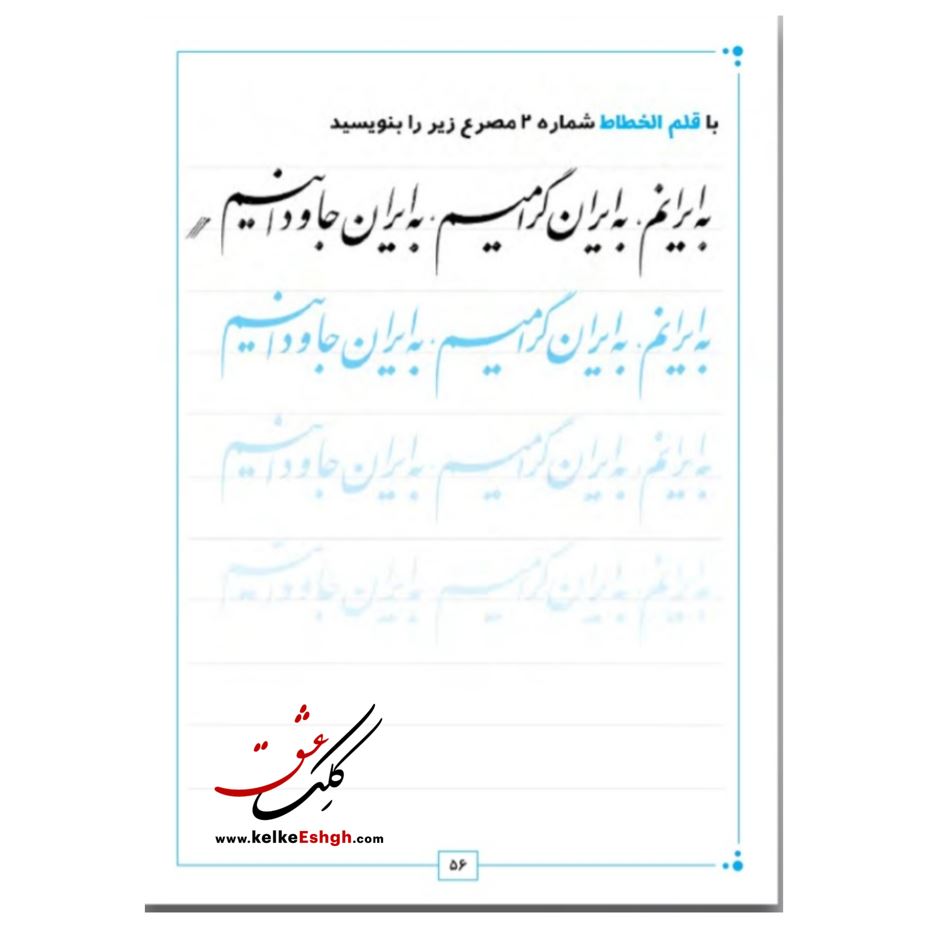 با قلم الخطاط شماره ۲ مصرع زیر را بنویسید
به ایرانم، به ایران گرامیم، به ایران جاودانیم
به ایرانم، به ایران گرامیم، به ایران جاودانیم
به ایرانم، به ایران گرامیم، به ایران جاودانیم
به ایرانم، به ایران گرامیم، به ایران جاودانیم
کلک عشق
www.kelkeEshgh.com
۵۶